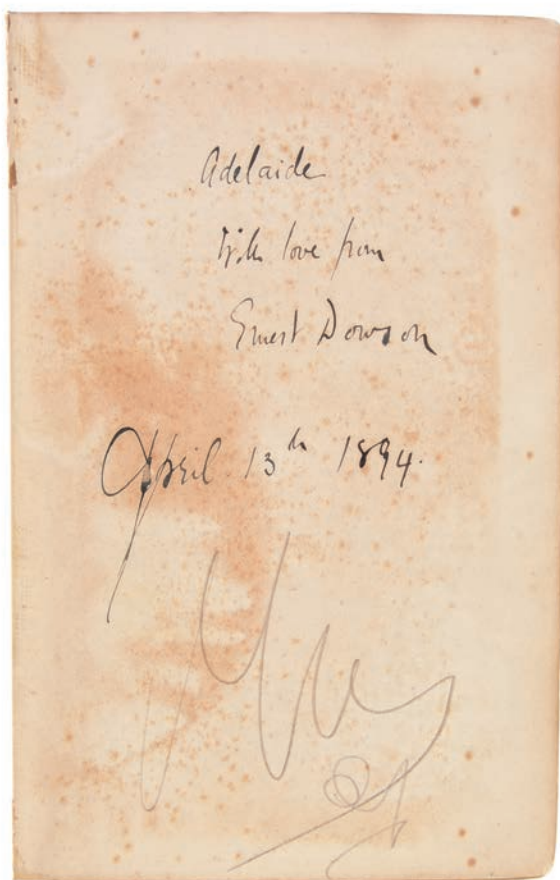 Adelaide
With love from
Ernest Dowson
April 13th 1894.